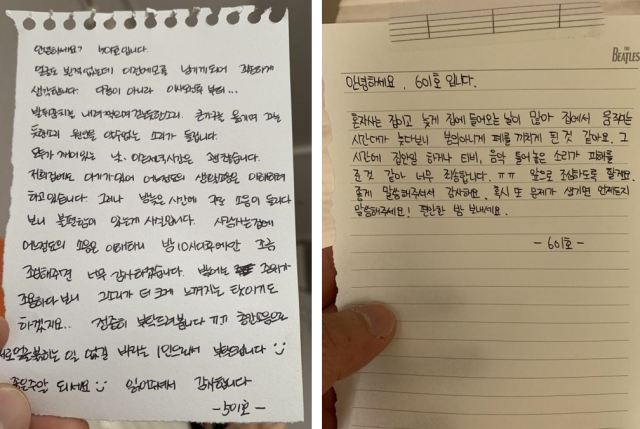 안녕하세요? 501호입니다.
얼굴도 뵌적없는데 이런메모를 남기게되어 죄송하게
생각합니다. 다름이 아니라 이사오신후 부터...
발뒤꿈치로 내려찍으며 걷는듯한소리. 큰가구를 옮기며 그는
듯한소리 원인을 알수없는 소리가 들립니다.
모두가 깨어있는 낮. 이른저녁시간은 괜찮습니다.
저희집에도 아기가 있어 어느정도의 생활소음은 이해하려
하고있습니다. 그러나 밤늦은 시간에 자꾸 소음이 들리다
보니 불편함이 있는게 사실입니다. 사람사는집에
어느정도의 소음은 이해하니 밤 10시이후에만 조금
조심해주면 너무 감사하겠습니다. 밤에는 모두가
조용하다 보니 그소리가 더 크게 느껴지는 탓이기도
하겠지요... 정중히 부탁드려봅니다 ㅠㅠ 층간소음으로
서로얼굴붉히는 일 없길 바라는 1인으로써 부탁드립니다 :)
좋은주말 되세요 :) 읽어주셔서 감사합니다
-501호-
THE
BEATLES
안녕하세요. 601호 입니다.
혼자사는 집이고 늦게 집에 들어오는 날이 많아 집에서 움직이는
시간대가 늦다보니 본의아니게 폐를 끼치게 된 것 같아요. 그
시간에 집안일 하거나 티비, 음악 틀어놓은 소리가 피해를
준 것 같아 너무 죄송합니다. ㅠㅠ 앞으로 조심하도록 할게요.
좋게 말씀해주셔서 감사해요. 혹시 또 문제가 생기면 언제든지
말씀해주세요! 편안한 밤 보내세요.
- 601호 -